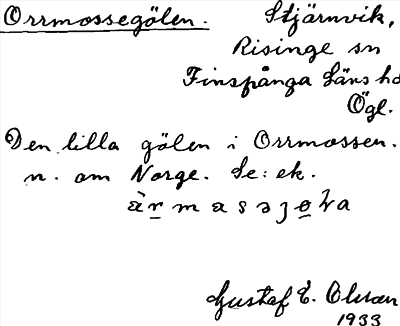 Orrmossegölen. Stjärnvik,
Risinge sn
Finspånga Läns hd
Ögl.
Den lilla gölen i Orrmossen.
n. om Norge. Se: ek.
Gustaf E. Olsson
1933